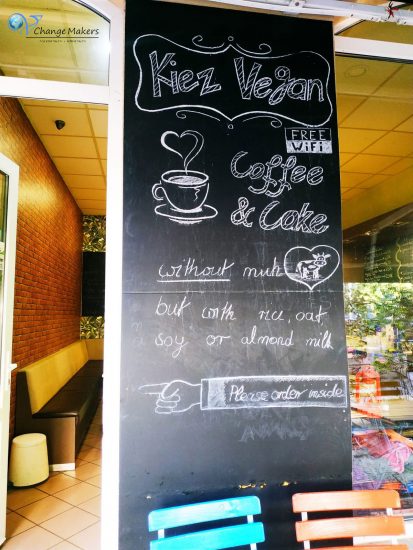 Change Makers
Kiez Vegan
FREE
WiFi
Coffee
& Cake
without
but with rice, oat
soy or almond milk
Please order inside